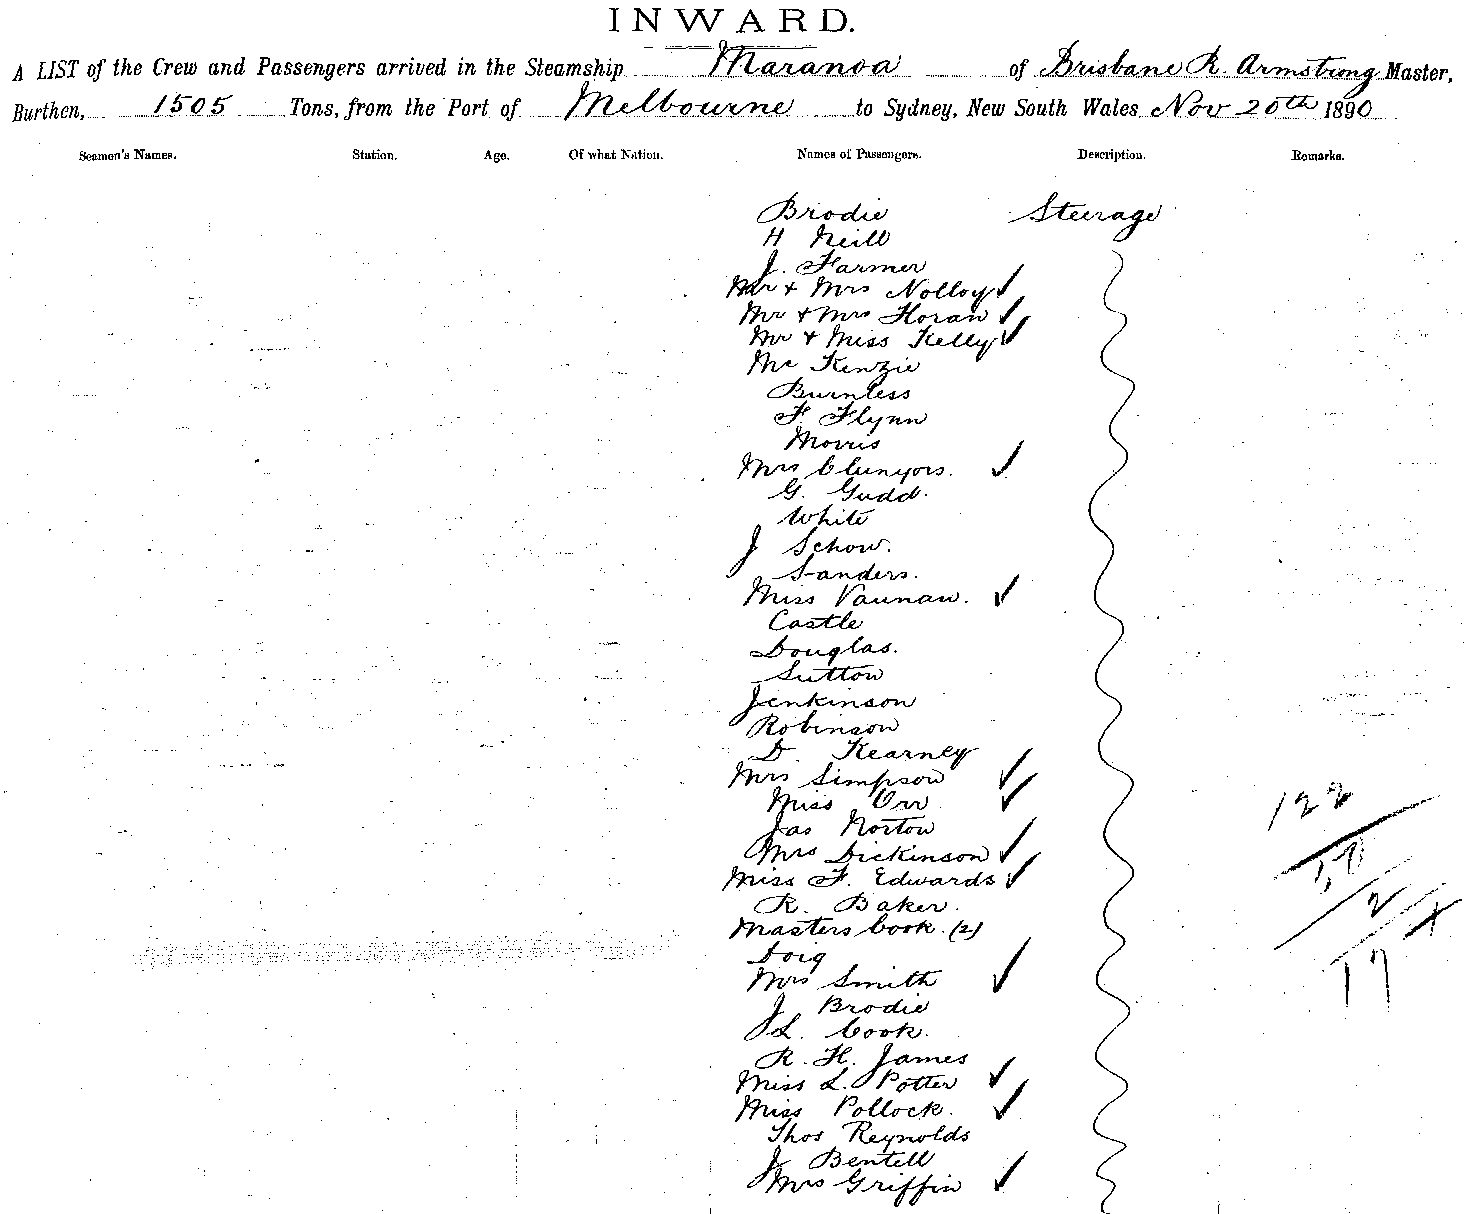 INWARD.
A LIST of the Crew and Passengers arrived in the Steamship Maranoa of Brisbane R. Armstrong Master,
Burthen, 1505 Tons, from the Port of Melbourne to Sydney, New South Wales Nov 20th 1890
Seamen's Names. Station. Age. Of what Nation. Names of Passengers. Description. Remarks.
Brodie Steerage
H Neill
J. Farmer
Mr + Mrs Nolloy ✓
Mr + Mrs Horan ✓
Mr + Miss Kelly ✓
Mc Kenzie
Burnless
F. Flynn
Morris
Mrs ✓
G. Gudd.
White
J Schow.
Sanders.
Miss Vaunau. ✓
Castle
Douglas.
Sutton
Jenkinson
Robinson
D. Kearney
Mrs Simpson ✓
Miss Orr ✓
122
Jas Norton
Mrs Dickinson ✓
Miss F. Edwards ✓
R. Baker.
2
Masters Cook. (2)
Doig
17
Mrs Smith ✓
J. Brodie
L. Cook.
R. H. James
Miss L. Potter ✓
Miss Pollock. ✓
Thos Reynolds
J. Bentell
Mrs Griffin ✓